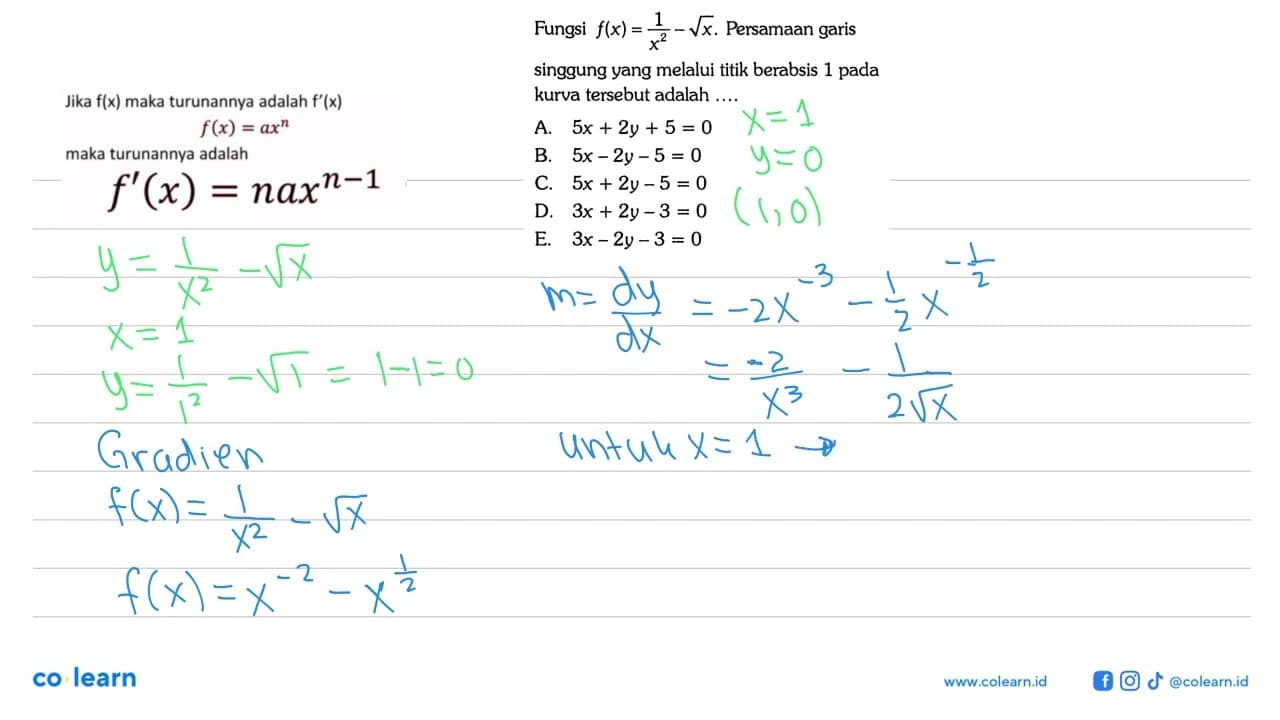 Fungsi f(x) = 1/x² − √x. Persamaan garis
singgung yang melalui titik berabsis 1 pada
kurva tersebut adalah ....
A. 5x + 2y + 5 = 0
B. 5x − 2y − 5 = 0
C. 5x + 2y − 5 = 0
D. 3x + 2y − 3 = 0
E. 3x − 2y − 3 = 0
x = 1
y = 0
(1, 0)
Jika f(x) maka turunannya adalah f'(x)
f(x) = axⁿ
maka turunannya adalah
f'(x) = naxⁿ⁻¹
y = 1/x² − √x
x = 1
y = 1/1² − √1 = 1 − 1 = 0
Gradien
f(x) = 1/x² − √x
f(x) = x^(-2) − x^(1/2)
m = dy/dx = −2x^(-3) − 1/2 x^(-1/2)
= −2/x³ − 1/(2√x)
untuk x = 1 →
co learn
www.colearn.id
@colearn.id